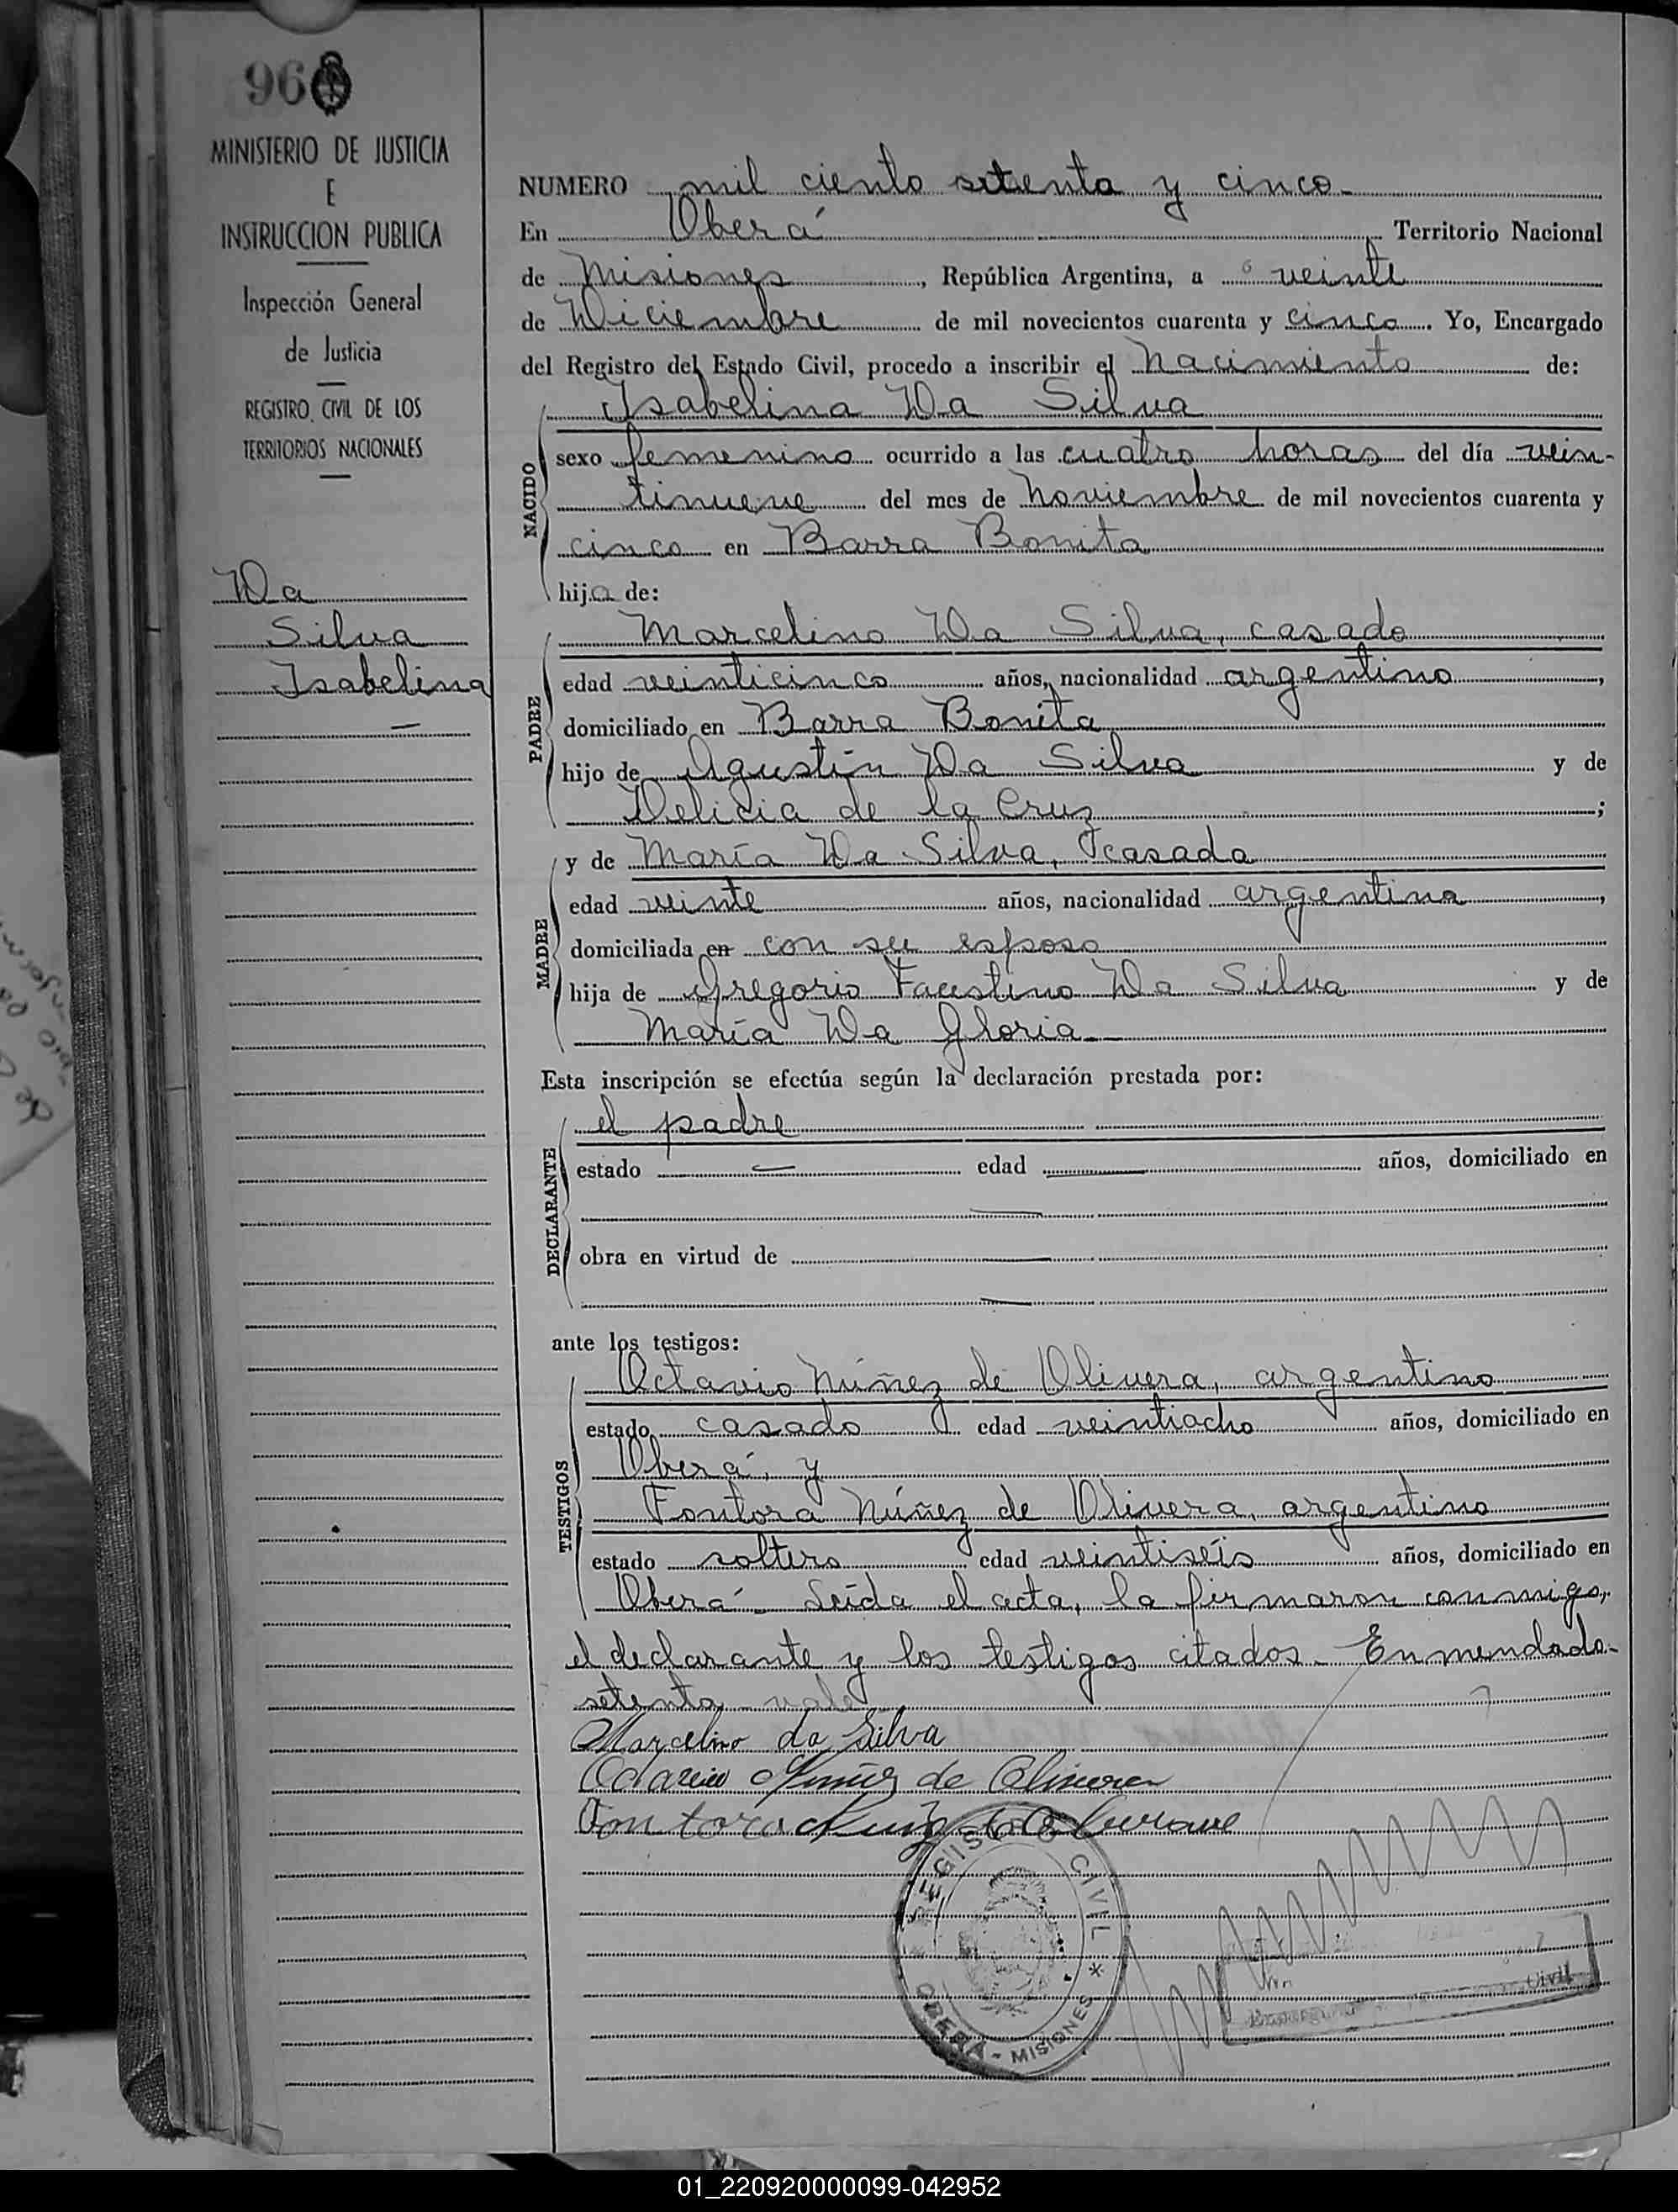 96
MINISTERIO DE JUSTICIA
E
INSTRUCCION PUBLICA
Inspección General
de Justicia
REGISTRO CIVIL DE LOS
TERRITORIOS NACIONALES
Da
Silva
Isabelina
NUMERO mil ciento setenta y cinco
En Oberá Territorio Nacional
de Misiones, República Argentina, a veinte
de Diciembre de mil novecientos cuarenta y cinco. Yo, Encargado
del Registro del Estado Civil, procedo a inscribir el Nacimiento de:
NACIDO
Isabelina Da Silva
sexo femenino ocurrido a las cuatro horas del día vein-
tinueve del mes de Noviembre de mil novecientos cuarenta y
cinco en Barra Bonita
hija de:
PADRE
Marcelino Da Silva, casado
edad veinticinco años, nacionalidad argentino,
domiciliado en Barra Bonita
hijo de Agustín Da Silva y de
Delicia de la Cruz;
MADRE
y de María Da Silva, casada
edad veinte años, nacionalidad argentina,
domiciliada en con su esposo
hija de Gregorio Faustino Da Silva y de
María Da Gloria
Esta inscripción se efectúa según la declaración prestada por:
DECLARANTE
el padre
estado — edad — años, domiciliado en
obra en virtud de —
ante los testigos:
TESTIGOS
Octavio Núñez de Olivera, argentino
estado casado edad veintiocho años, domiciliado en
Oberá, y
Fontora Núñez de Olivera, argentino
estado soltero edad veintiséis años, domiciliado en
Oberá - Leída el acta, la firmaron conmigo,
el declarante y los testigos citados - Enmendado -
setenta - vale
Marcelino da Silva
Octavio Núñez de Olivera
Fontora Nuñez de
REGISTRO CIVIL * OBERÁ - MISIONES
Civil
01_220920000099-042952